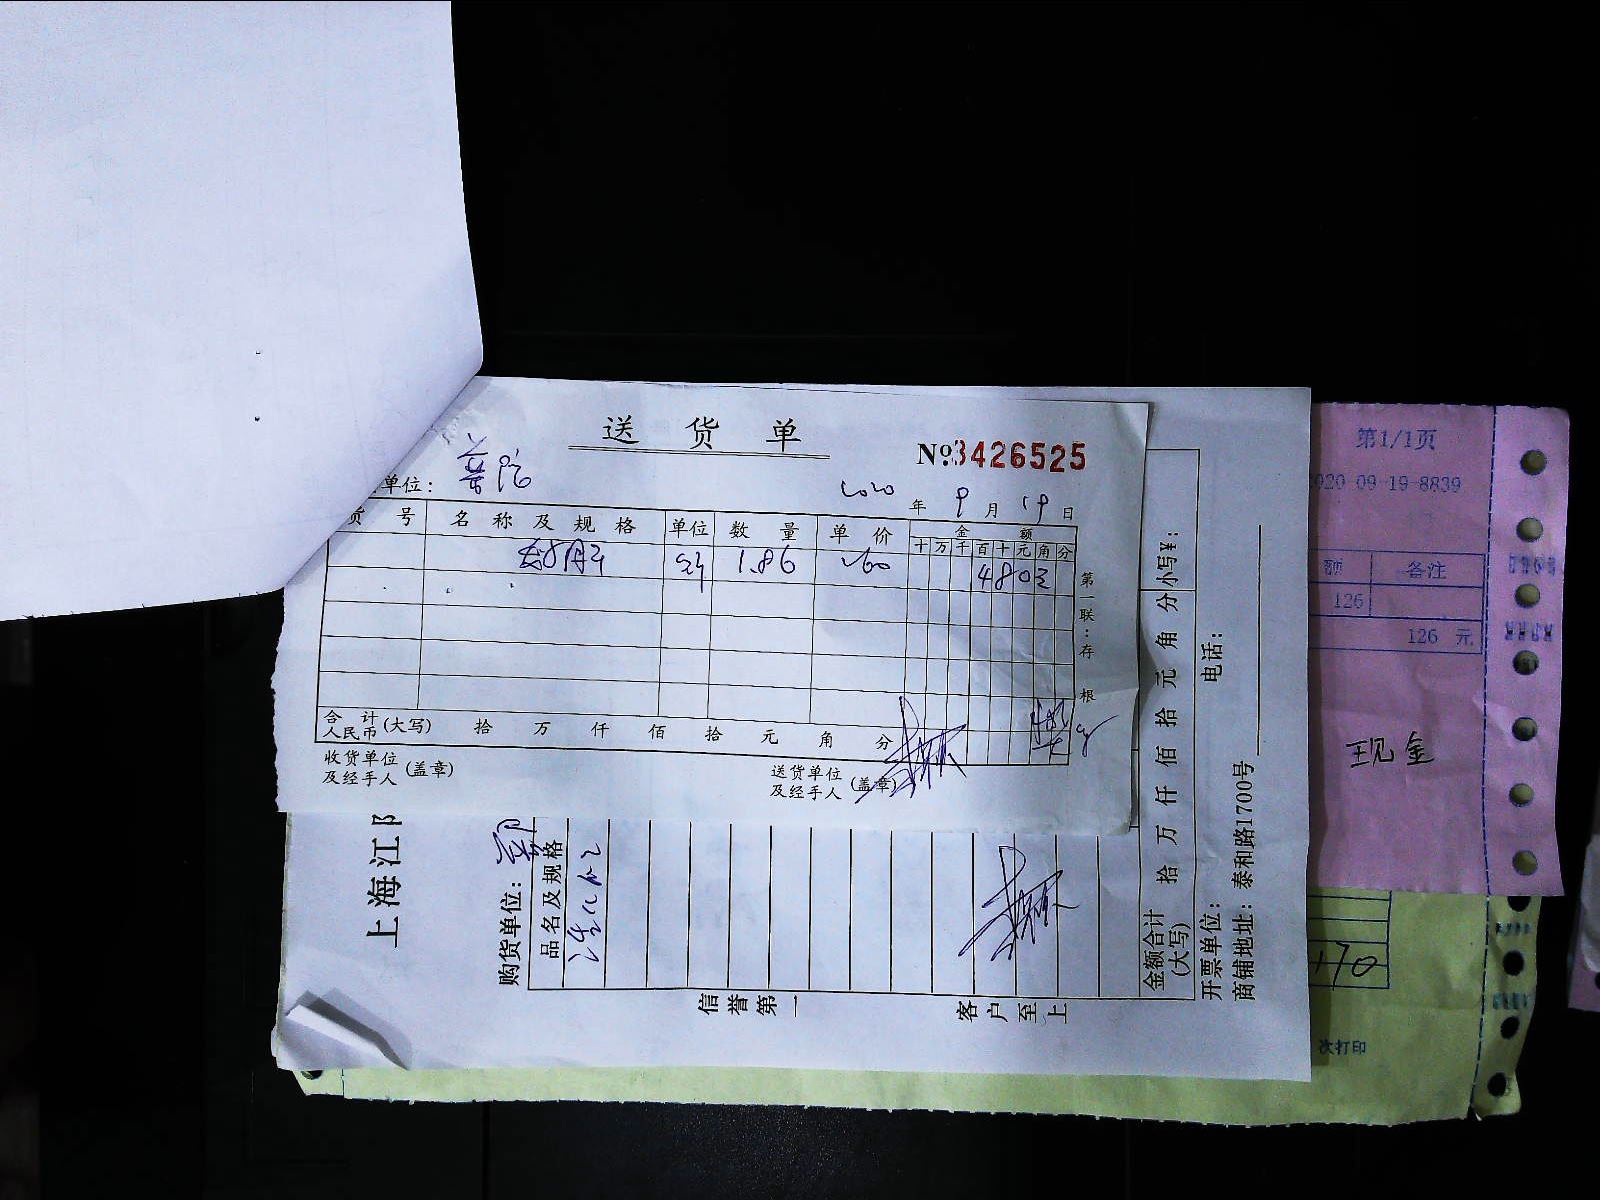 送货单
№3426525
单位：
2020年9月19日
货号 名称及规格 单位 数量 单价 金额
十万千百十元角分
1.86 260 480
第一联：存根
合计人民币(大写) 拾 万 仟 佰 拾 元 角 分
收货单位及经手人(盖章)
送货单位及经手人(盖章)
上海江阳
购货单位：
品名及规格
信誉第一
客户至上
金额合计(大写) 拾 万 仟 佰 拾 元 角 分 小写¥：
开票单位：
电话：
商铺地址：泰和路1700号
第1/1页
2020-09-19-8839
额 备注
126
126 元
现金
170
次打印